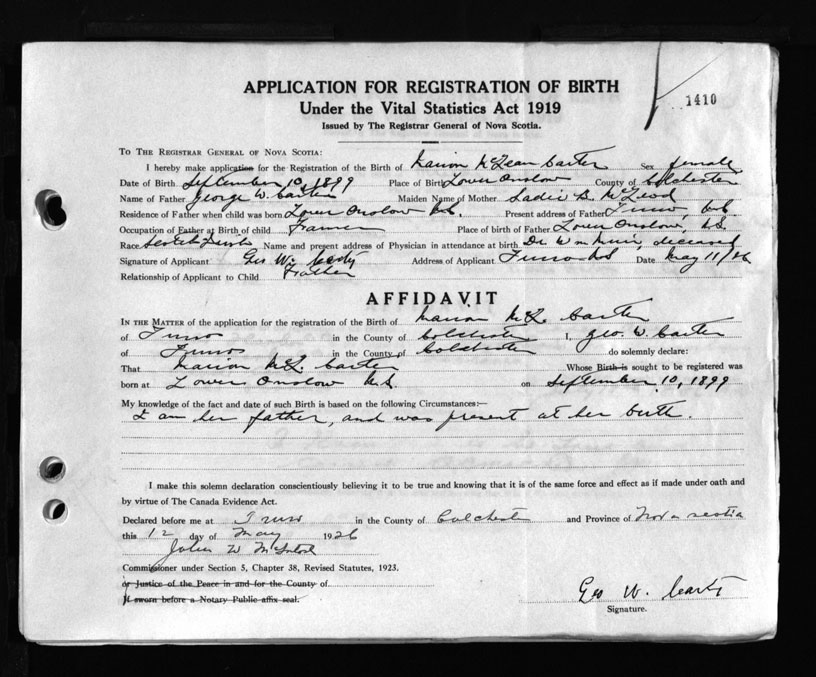 1410
APPLICATION FOR REGISTRATION OF BIRTH
Under the Vital Statistics Act 1919
Issued by The Registrar General of Nova Scotia.
TO THE REGISTRAR GENERAL OF NOVA SCOTIA:
I hereby make application for the Registration of the Birth of Marion McLean Carter Sex female
Date of Birth September 10, 1899 Place of Birth Lower Onslow County of Colchester
Name of Father George W. Carter Maiden Name of Mother Sadie B. McLeod
Residence of Father when child was born Lower Onslow N.S. Present address of Father Truro, N.S.
Occupation of Father at Birth of child Farmer Place of birth of Father Lower Onslow, N.S.
Race Scotch Irish Name and present address of Physician in attendance at birth Dr Wm Muir, deceased
Signature of Applicant Geo W. Carter Address of Applicant Truro N S Date May 11/26
Relationship of Applicant to Child Father
AFFIDAVIT
IN THE MATTER of the application for the registration of the Birth of Marion McL. Carter
of Truro in the County of Colchester I, Geo. W. Carter
of Truro in the County of Colchester do solemnly declare:
That Marion McL. Carter Whose Birth is sought to be registered was
born at Lower Onslow N.S. on September 10, 1899
My knowledge of the fact and date of such Birth is based on the following Circumstances:—
I am her father, and was present at her birth.
I make this solemn declaration conscientiously believing it to be true and knowing that it is of the same force and effect as if made under oath and
by virtue of The Canada Evidence Act.
Declared before me at Truro in the County of Colchest and Province of Nova Scotia
this 12 day of May 1926
John W McIntosh
Commissioner under Section 5, Chapter 38, Revised Statutes, 1923.
or Justice of the Peace in and for the County of
If sworn before a Notary Public affix seal.
Geo W. Carter
Signature.